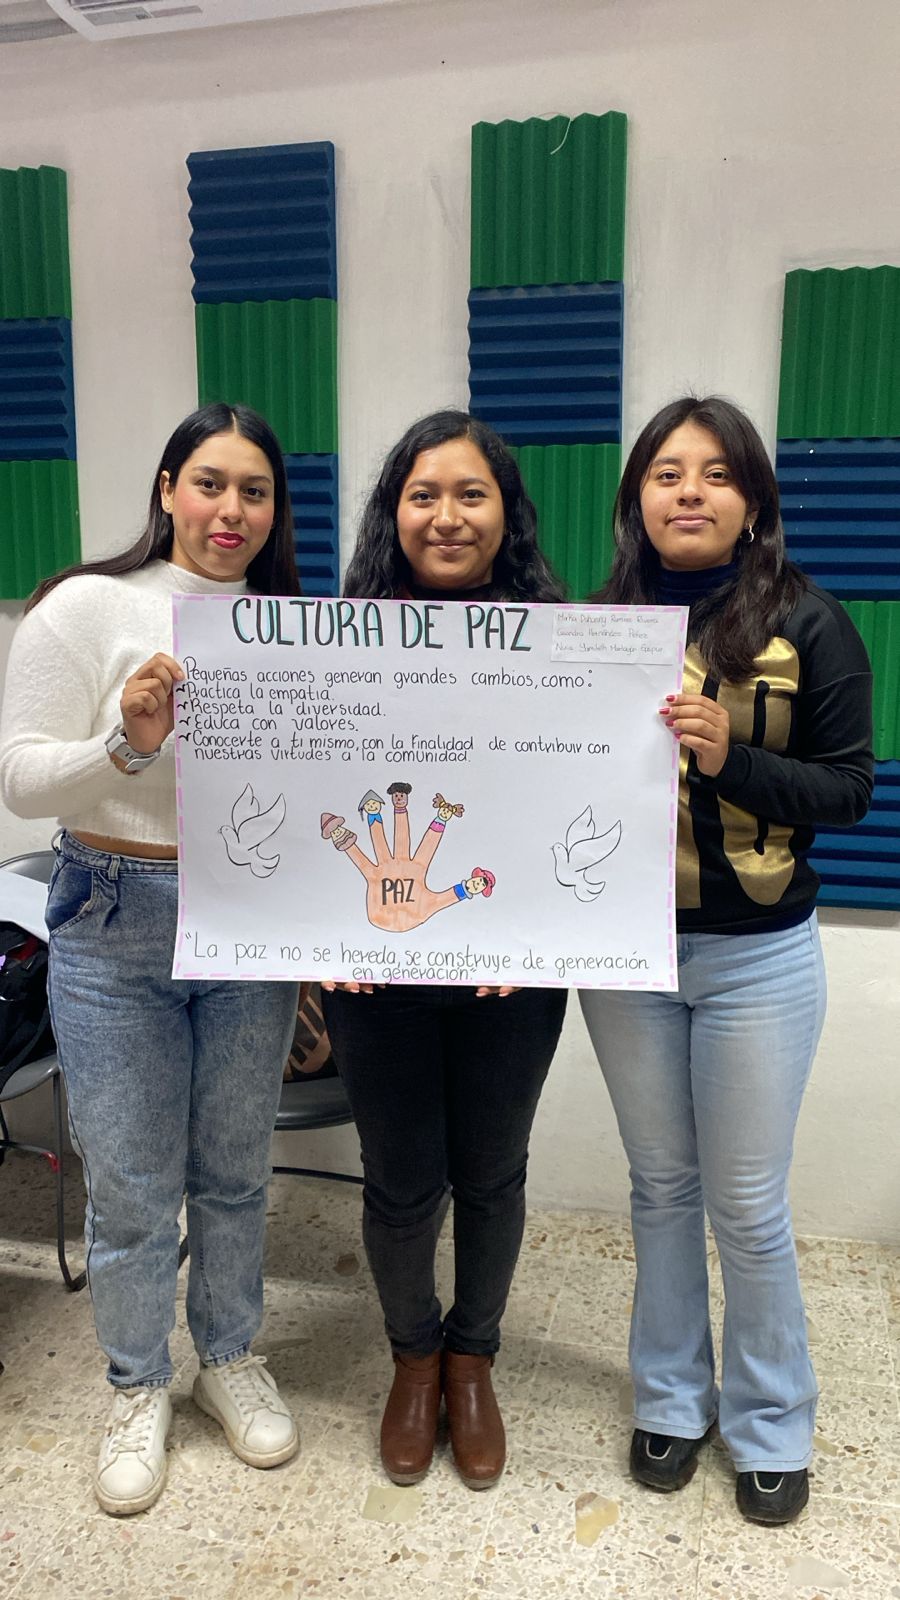 CULTURA DE PAZ
Ramirez Rivera
Hernández Pérez
Pequeñas acciones generan grandes cambios, como:
Practica la empatia.
Respeta la diversidad.
Educa con valores.
Conocerte a ti mismo, con la finalidad de contribuir con
nuestras virtudes a la comunidad.
PAZ
"La paz no se hereda, se construye de generación
en generación"